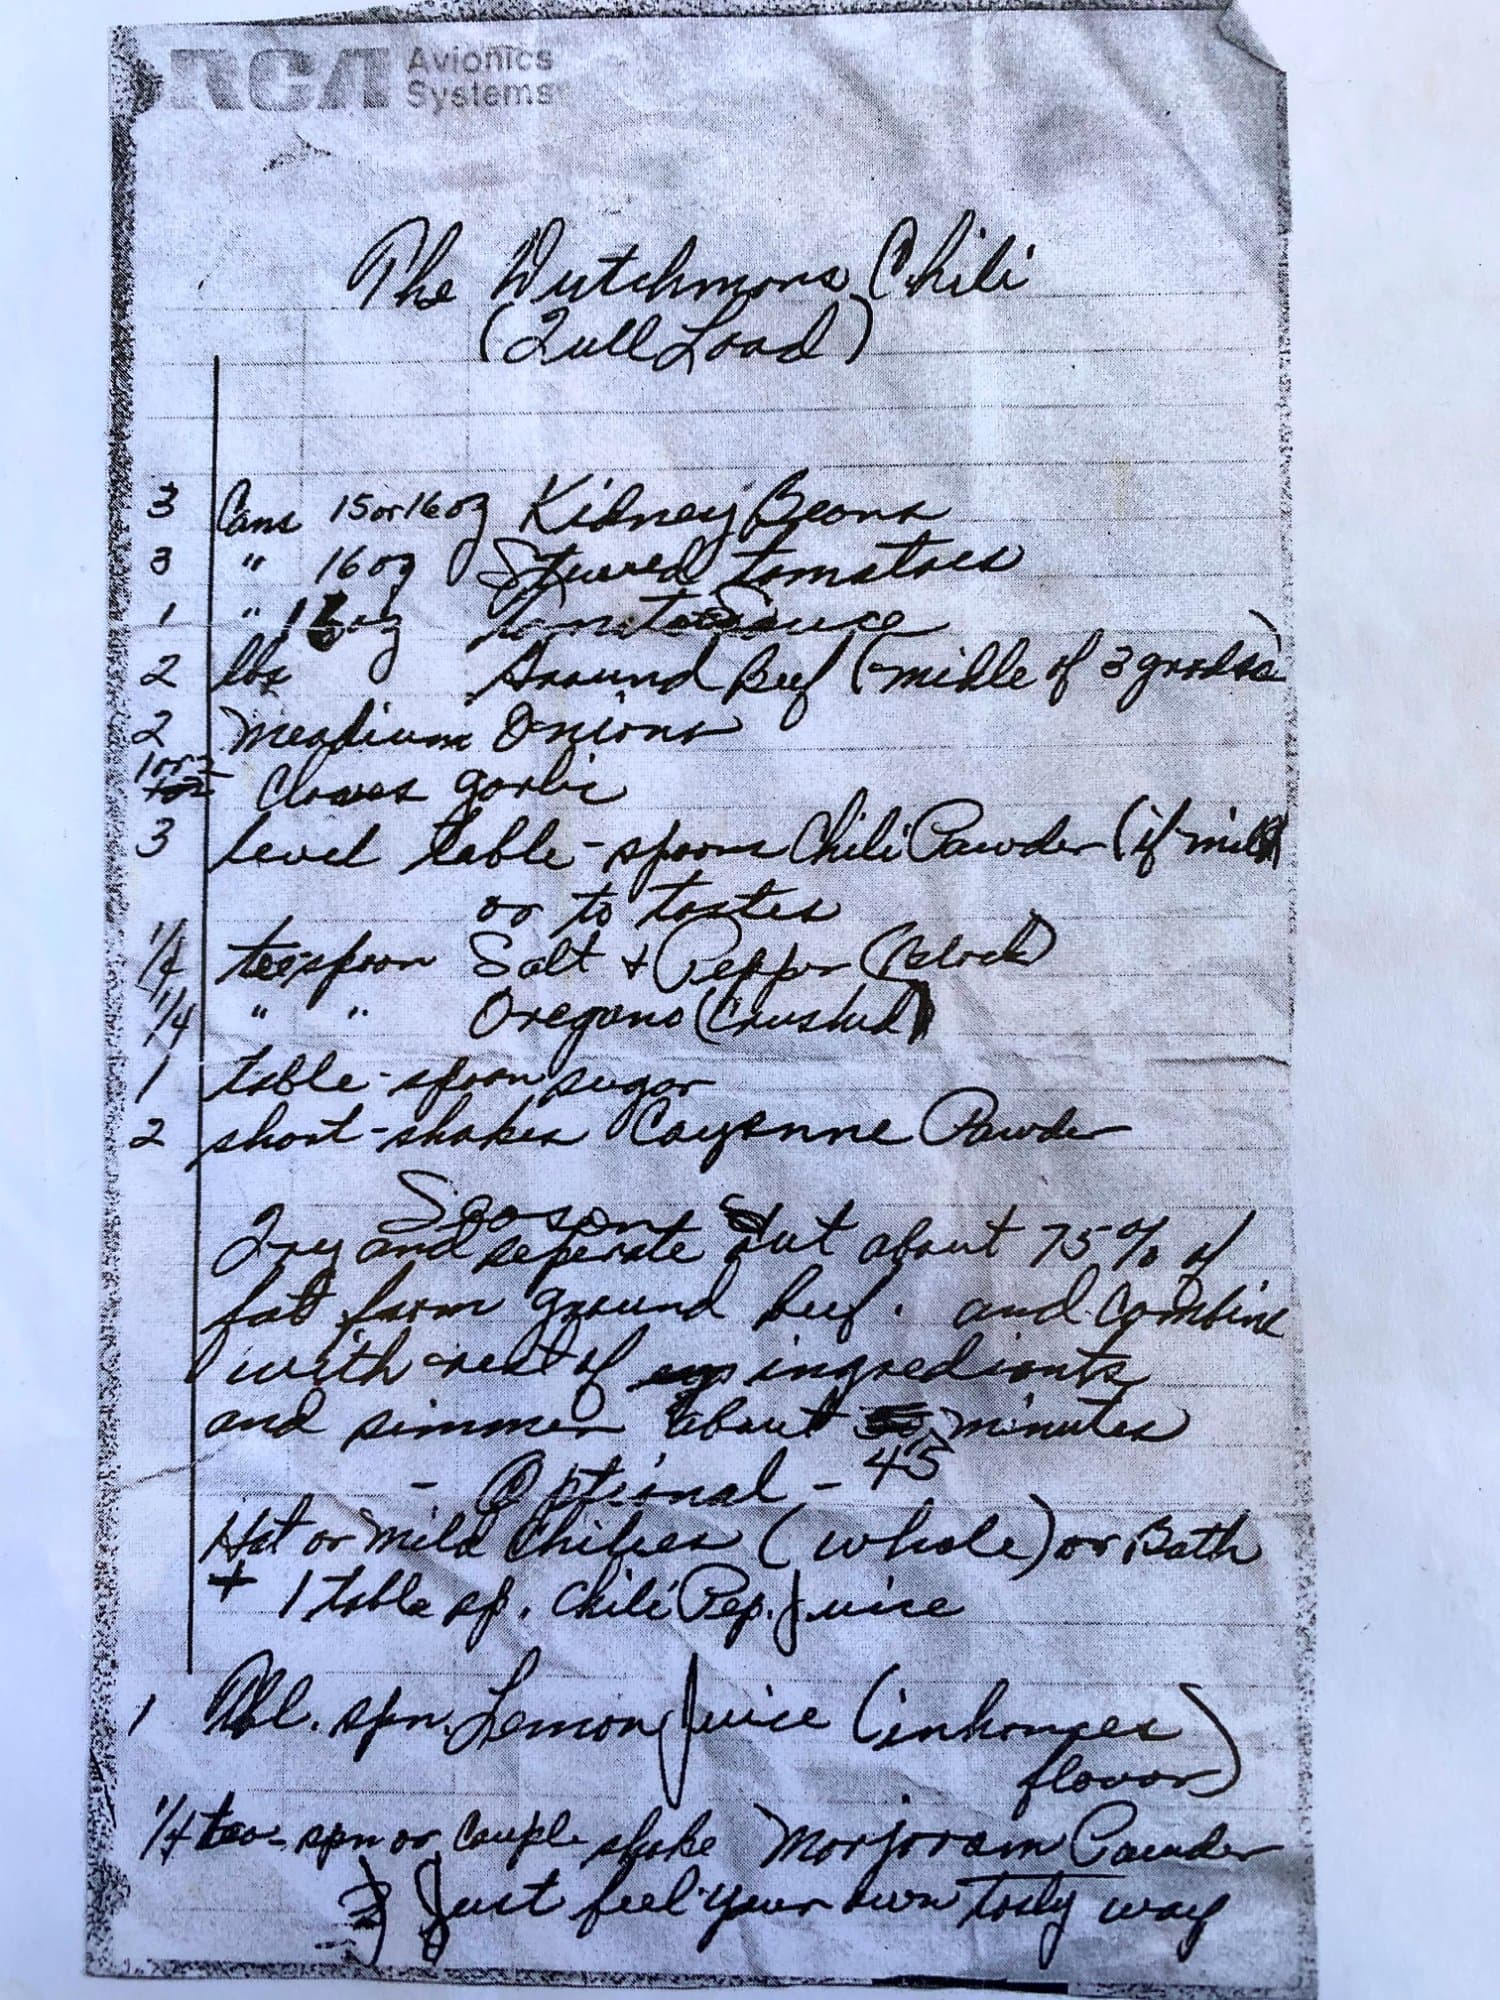 RCA Avionics
Systems
The Dutchmans Chili
(Full Load)
3 Cans 15 or 16 oz Kidney Beans
3 " 16 oz Stewed tomatoes
1 " 16 oz Sauce
2 lbs Ground Beef (midle of 3 grades)
2 meadium Onions
1 or 2 Cloves garlic
3 level table-spoons Chili Powder (if mild)
or to tastes
1/4 teespoon Salt + Pepper (Black)
1/4 " " Oregano (Crushed)
1 table-spoon sugar
2 short-shakes Cayenne Powder
Season
Fry and seperate out about 75% of
fat from ground beef. and Combine
with rest of ingredients
and simmer about minutes
45
- Optional -
Hot or mild Chilies (whole) or Both
+ 1 table sp. Chili Pep. Juice
1 Tbl. spn. Lemon Juice (inhances
flavor)
1/4 tea-spn or Couple shake Marjoram Powder
Just feel your own tasty way